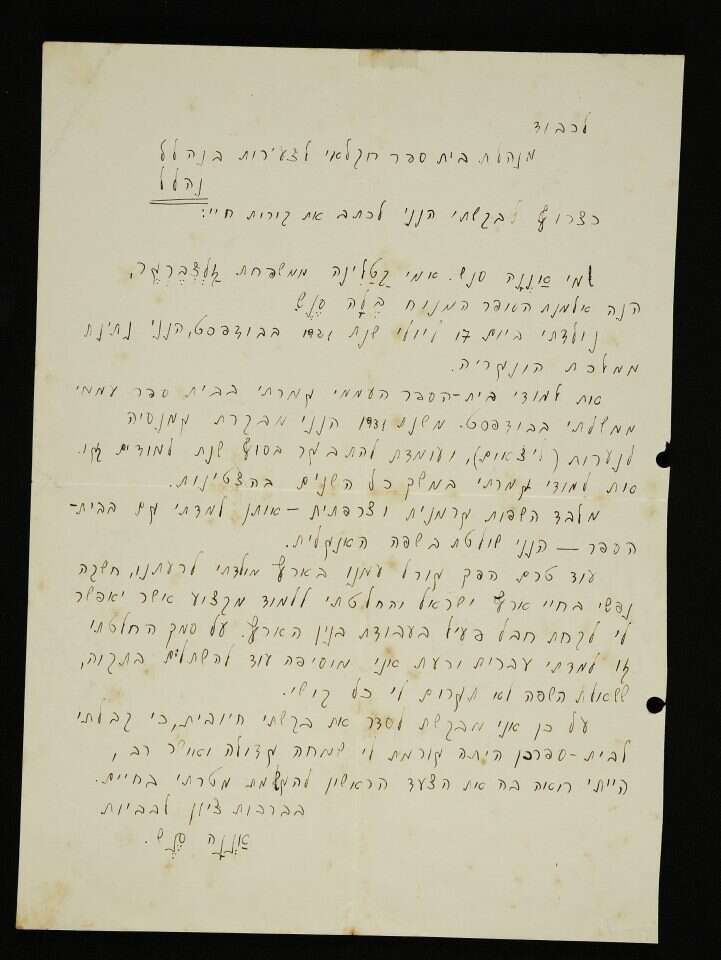 לכבוד
מנהלת בית ספר חקלאי לצעירות בנהלל
נהלל
כצרוף לבקשתי הנני לכתב את קורות חיי:
שמי אַנְנָה סנש. אמי קַטַלִינָה ממשפחת זַלְצְבֶּרְגֶר,
הנה אלמנת הסופר המנוח בֶּלָה סֶנֶשׁ
נולדתי ביום 17 ליולי שנת 1921 בבודפסט, הנני נתינת
ממלכת הונגריה.
את למודי בית-הספר העממי גמרתי בבית ספר עממי
ממשלתי בבודפסט. משנת 1931 הנני מבקרת גמנסיה
לנערות (ליצאום), ועומדת להתבגר בסוף שנת למודים זו.
את למודי גמרתי במשך כל השנים בהצטינות.
מלבד השפות גרמנית וצרפתית – אותן למדתי גם בבית-
הספר – הנני שולטת בשפה האנגלית.
עוד טרם הפך גורל עמנו בארץ מולדתי לרעתנו, חשקה
נפשי בחיי ארץ ישראל והחלטתי ללמוד מקצוע אשר יאפשר
לי לקחת חבל פעיל בעבודת בנין הארץ. על סמך החלטתי
זו למדתי עברית וכעת אני מוסיפה עוד להשתלם בתקוה,
ששאלת השפה לא תגרום לי כל קושי.
על כן אני מבקשת לסדר את בקשתי חיובית, כי קבלתי
לבית-ספרכן היתה גורמת לי שמחה גדולה ואושר רב,
הייתי רואה בה את הצעד הראשון להגשמת מטרתי בחיים.
בברכות ציון לבביות
אַנְנָה סֶנֶשׁ.